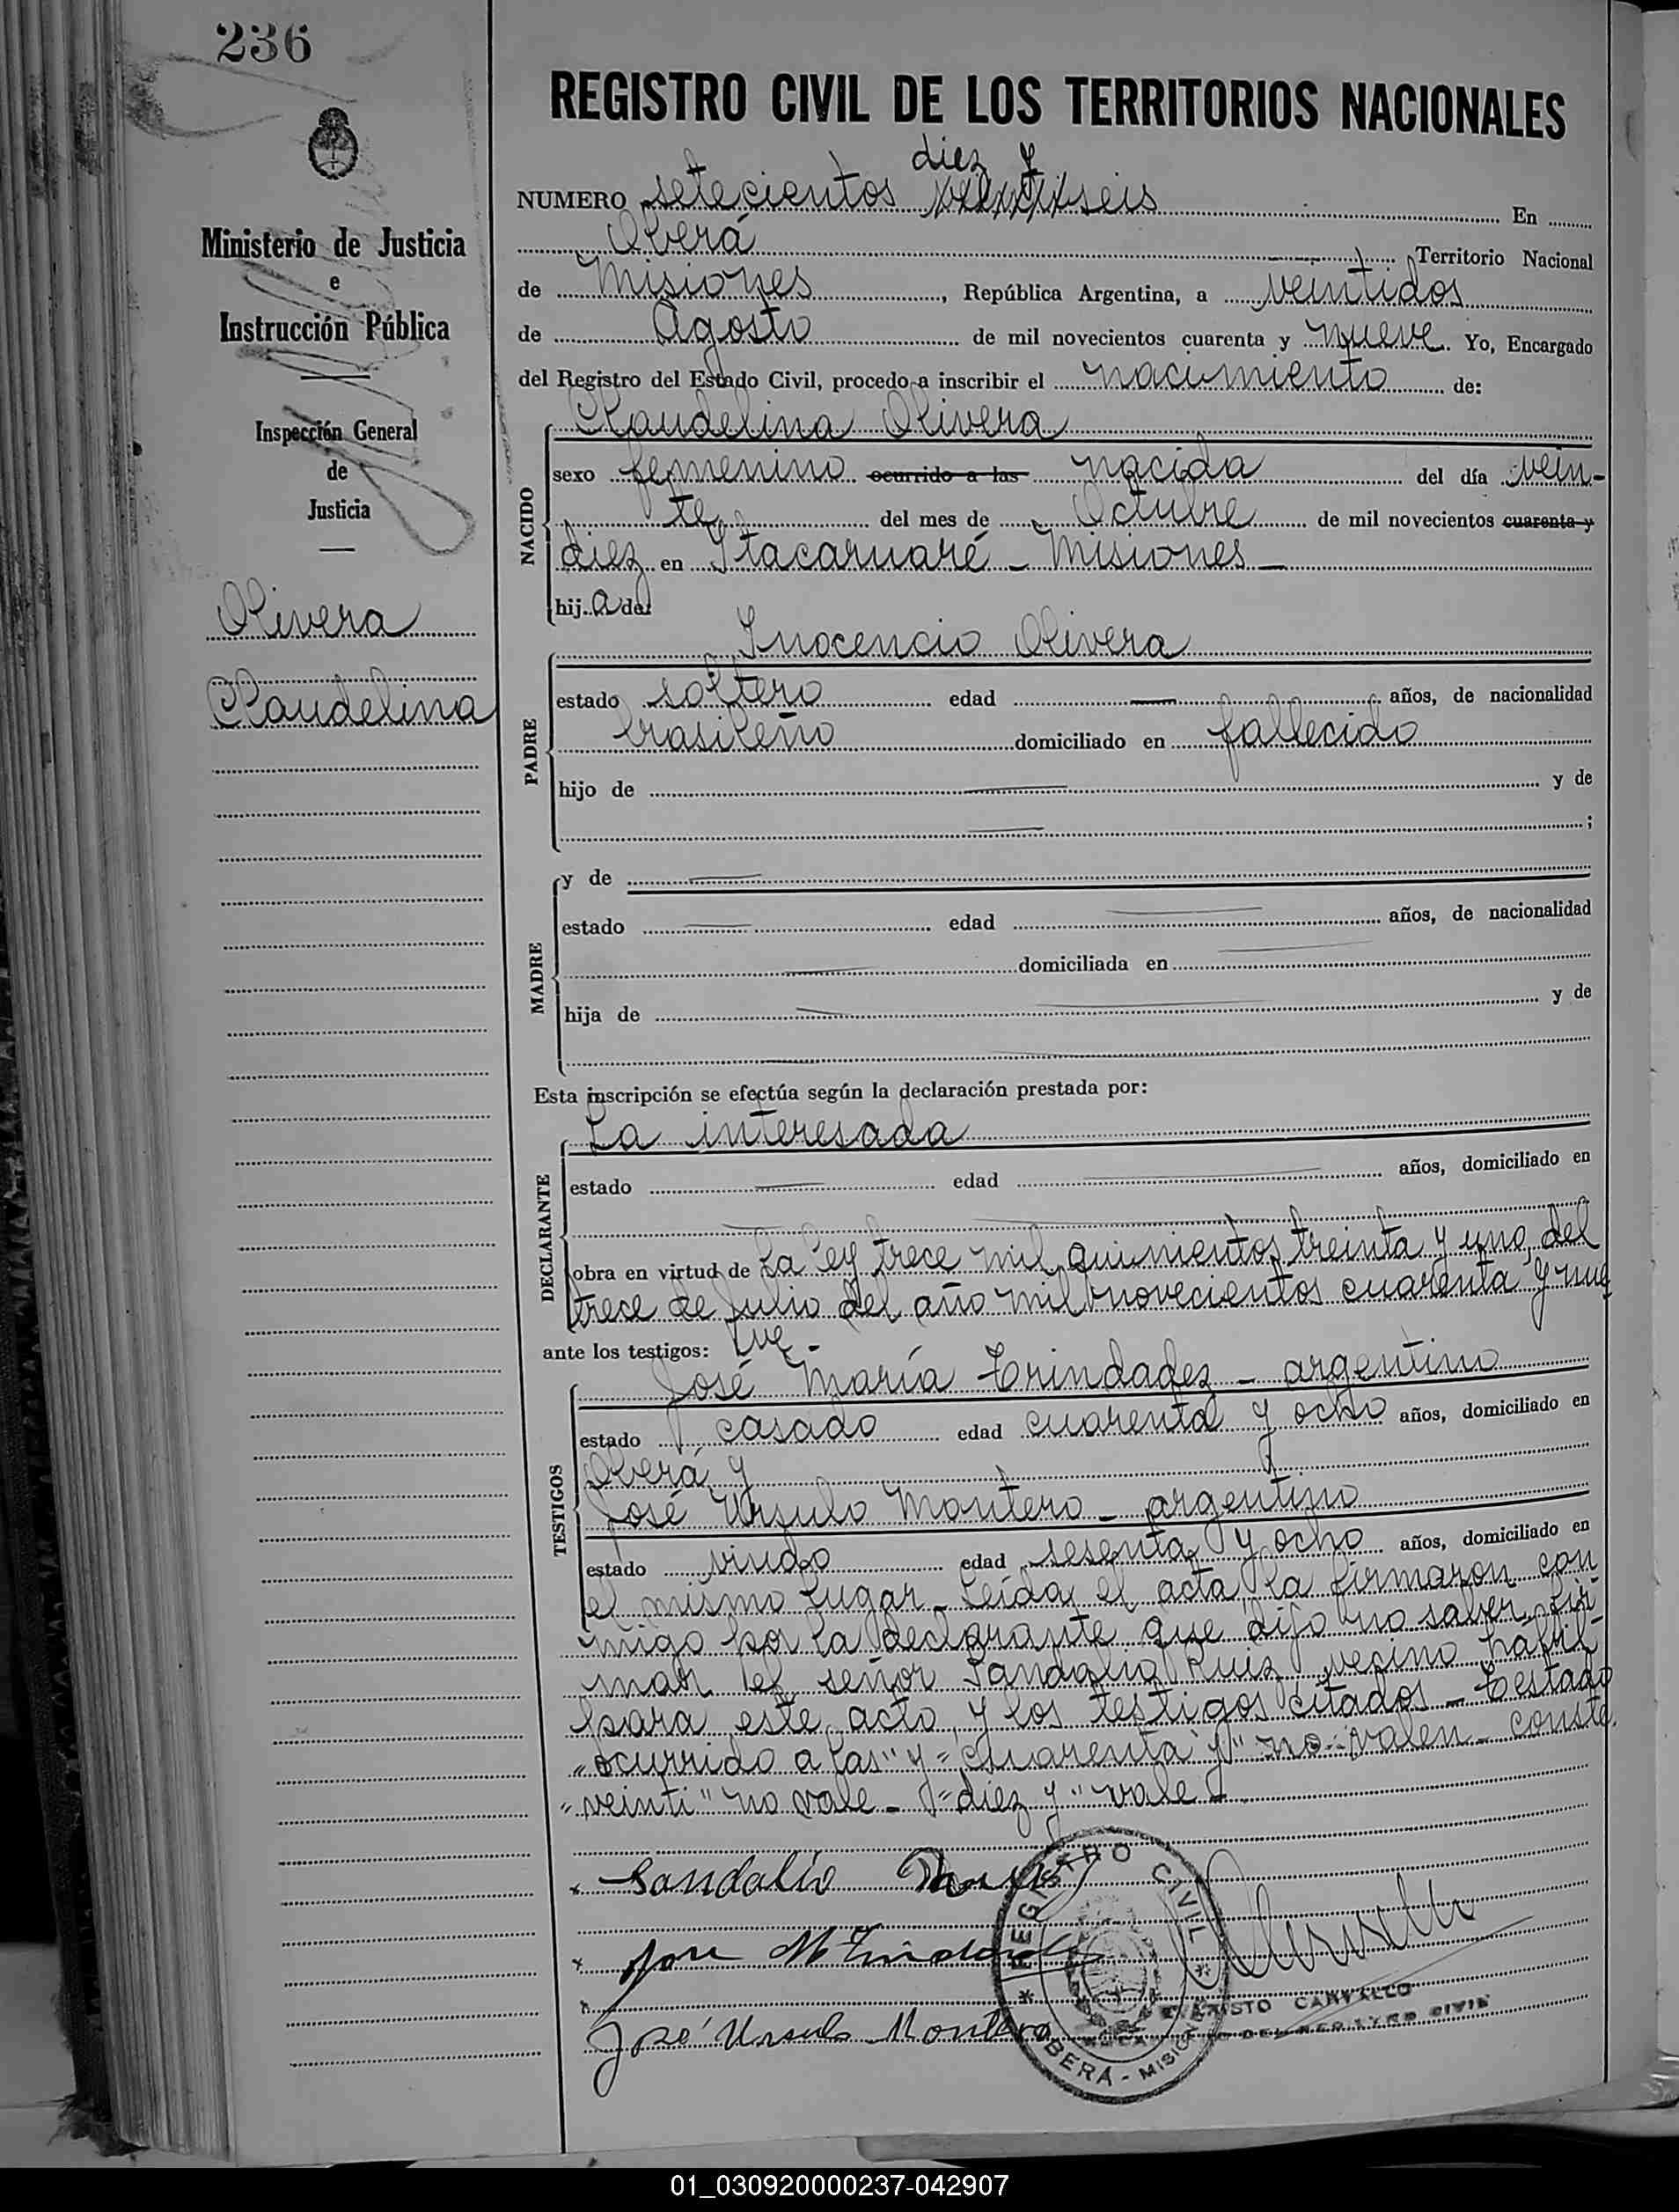 236
Ministerio de Justicia
e
Instrucción Pública
Inspección General
de
Justicia
Olivera
Claudelina
REGISTRO CIVIL DE LOS TERRITORIOS NACIONALES
diez y
NUMERO setecientos veintiseis En
Oberá Territorio Nacional
de Misiones, República Argentina, a veintidos
de Agosto de mil novecientos cuarenta y nueve. Yo, Encargado
del Registro del Estado Civil, procedo a inscribir el nacimiento de:
NACIDO
Claudelina Olivera
sexo femenino ocurrido a las nacida del día vein-
te del mes de Octubre de mil novecientos cuarenta y
diez en Itacaruaré - Misiones -
hija de
PADRE
Inocencio Olivera
estado soltero edad — años, de nacionalidad
brasileño domiciliado en fallecido
hijo de — y de
— ;
MADRE
y de —
estado — edad — años, de nacionalidad
— domiciliada en —
hija de — y de
Esta inscripción se efectúa según la declaración prestada por:
DECLARANTE
La interesada
estado — edad — años, domiciliado en
obra en virtud de La ley trece mil quinientos treinta y uno, del
trece de Julio del año mil novecientos cuarenta y nue
ve -
ante los testigos:
TESTIGOS
José María Trindadez - argentino
estado casado edad cuarenta y ocho años, domiciliado en
Oberá y
José Ursulo Montero - argentino
estado viudo edad sesenta y ocho años, domiciliado en
el mismo lugar - Leída el acta, la firmaron con
migo por la declarante que dijo no saber fir-
mar el señor Sandalio Ruiz, vecino hábil
para este acto, y los testigos citados - Testado
"ocurrido a las" y "cuarenta y" no valen - conste.
"veinti" no vale - "diez y" vale -
Sandalio
José M Trindade
José Ursulo Montero
REGISTRO CIVIL
OBERÁ - MISIONES
EVARISTO CARVALLO
ENCARGADO DEL REGISTRO CIVIL
01_030920000237-042907